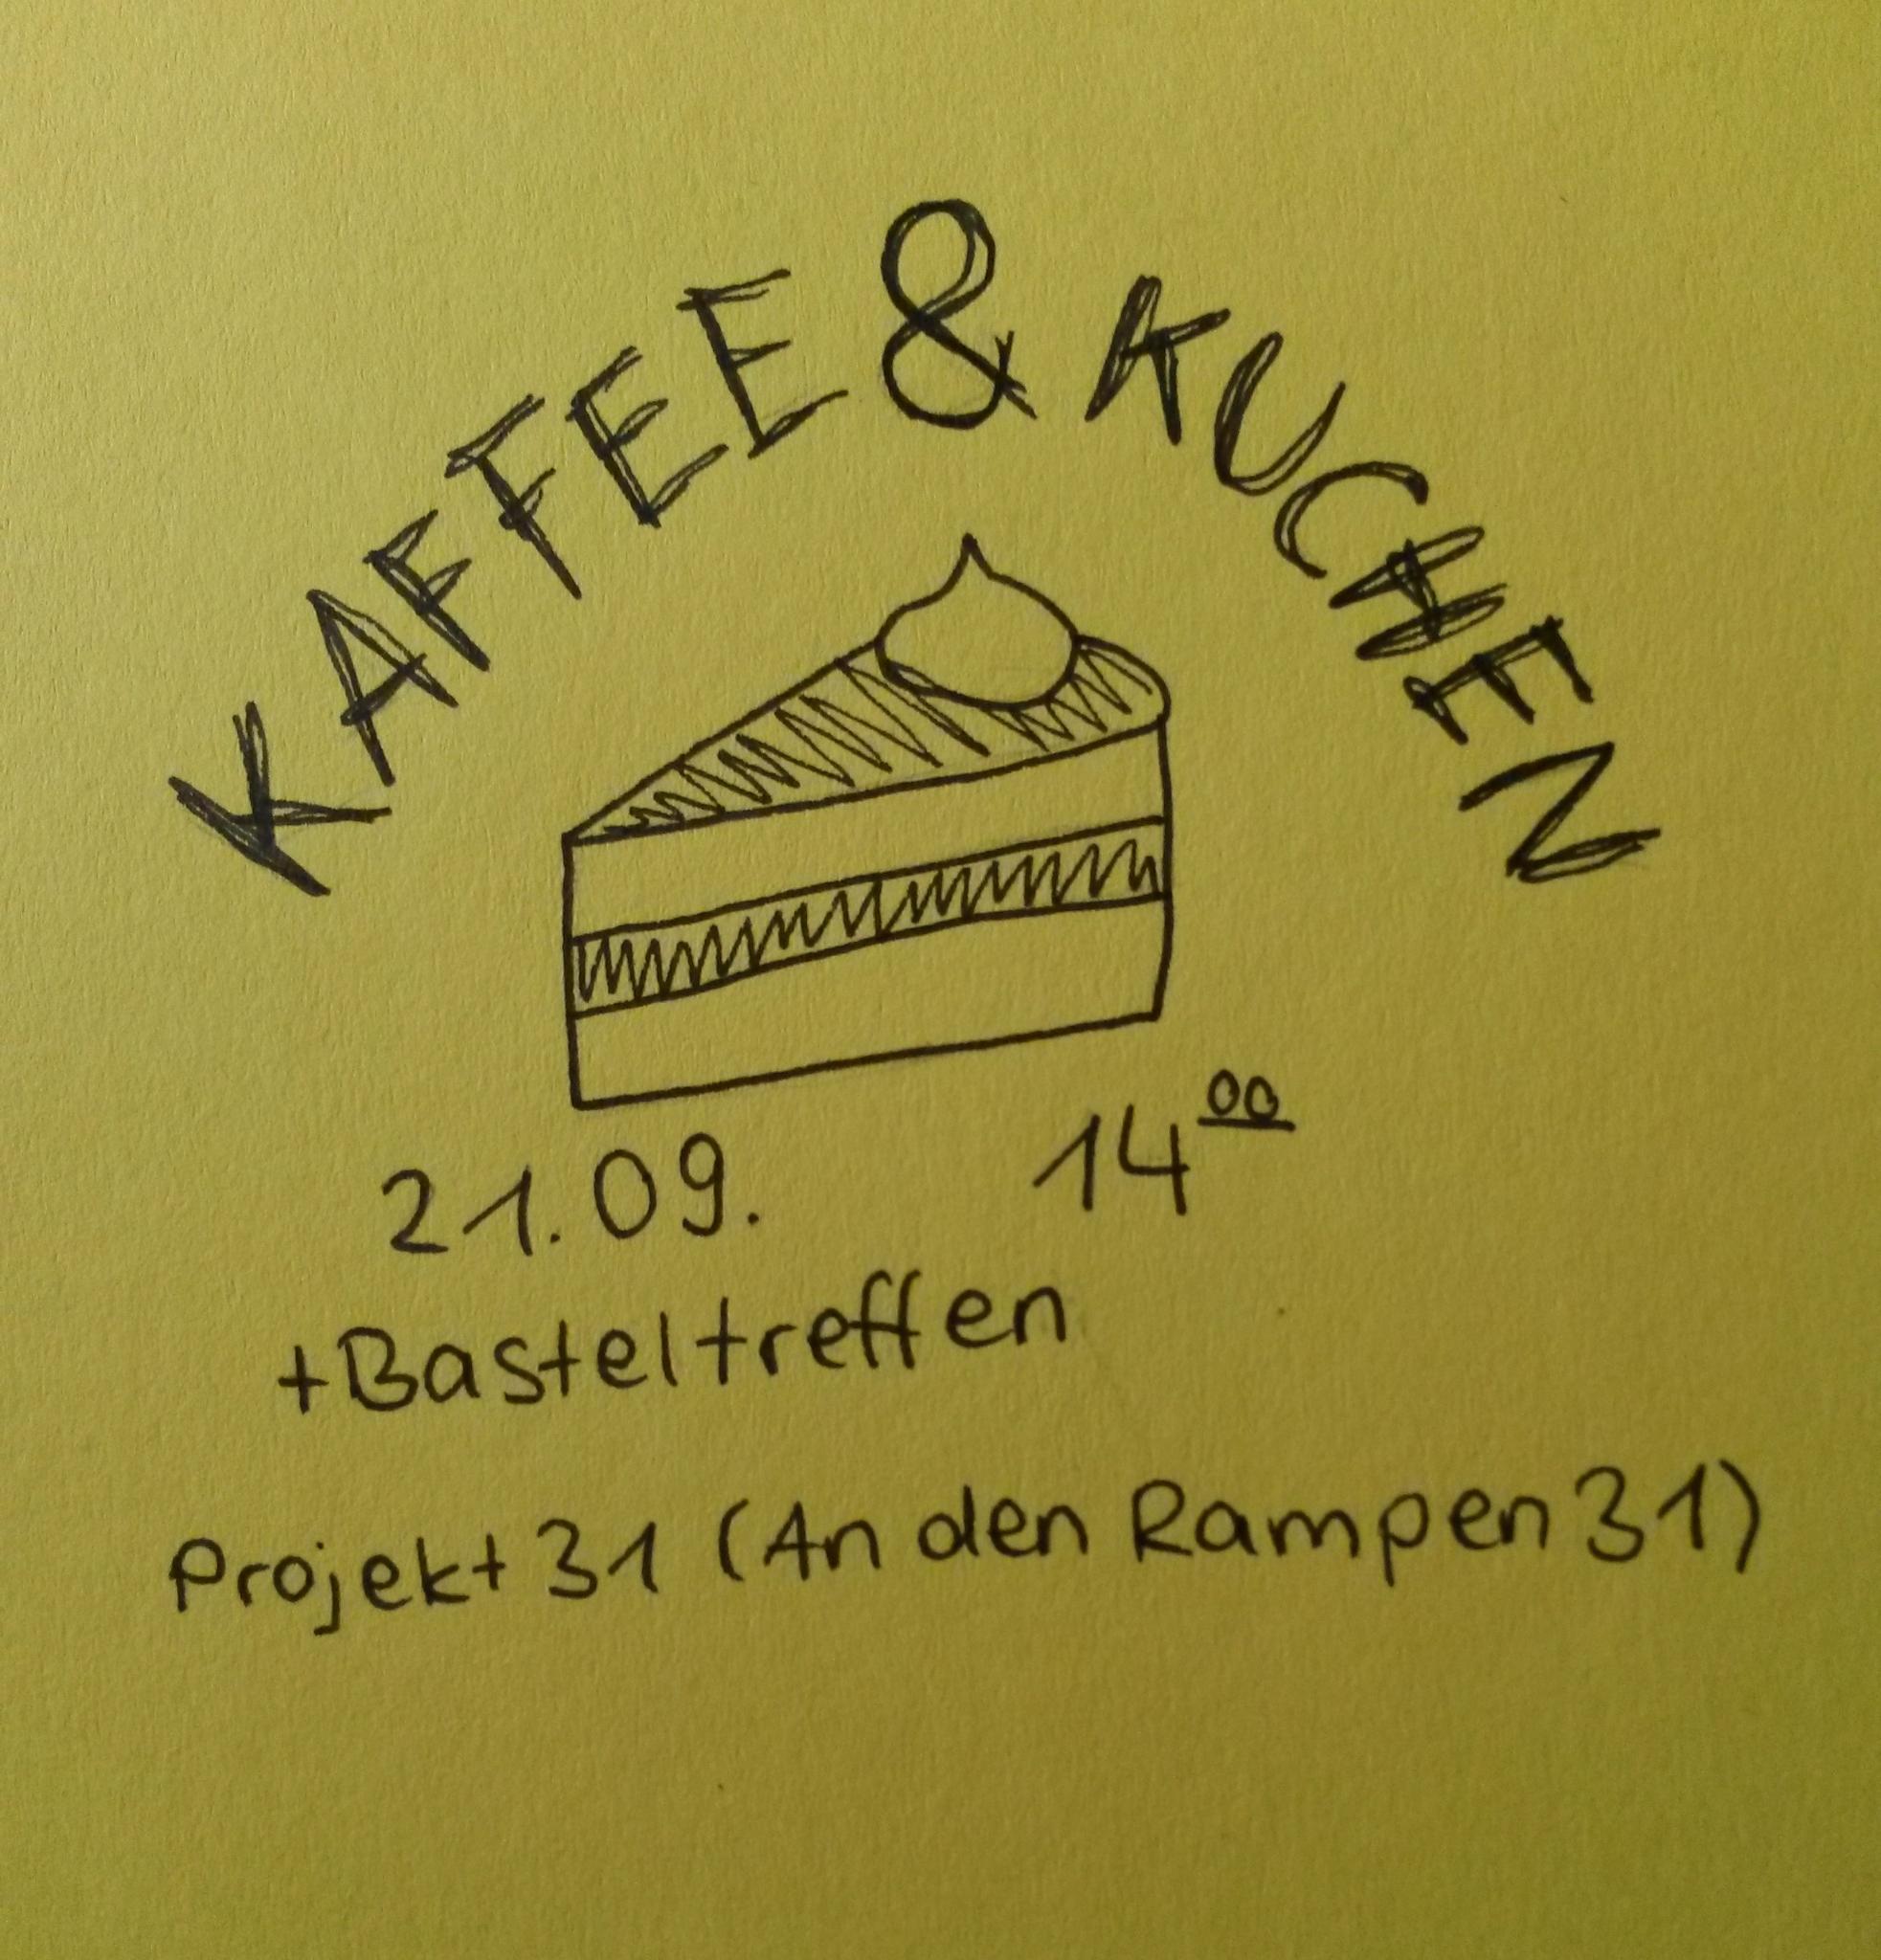 KAFFEE & KUCHEN
21.09. 14⁰⁰
+Basteltreffen
Projekt 31 (An den Rampen 31)